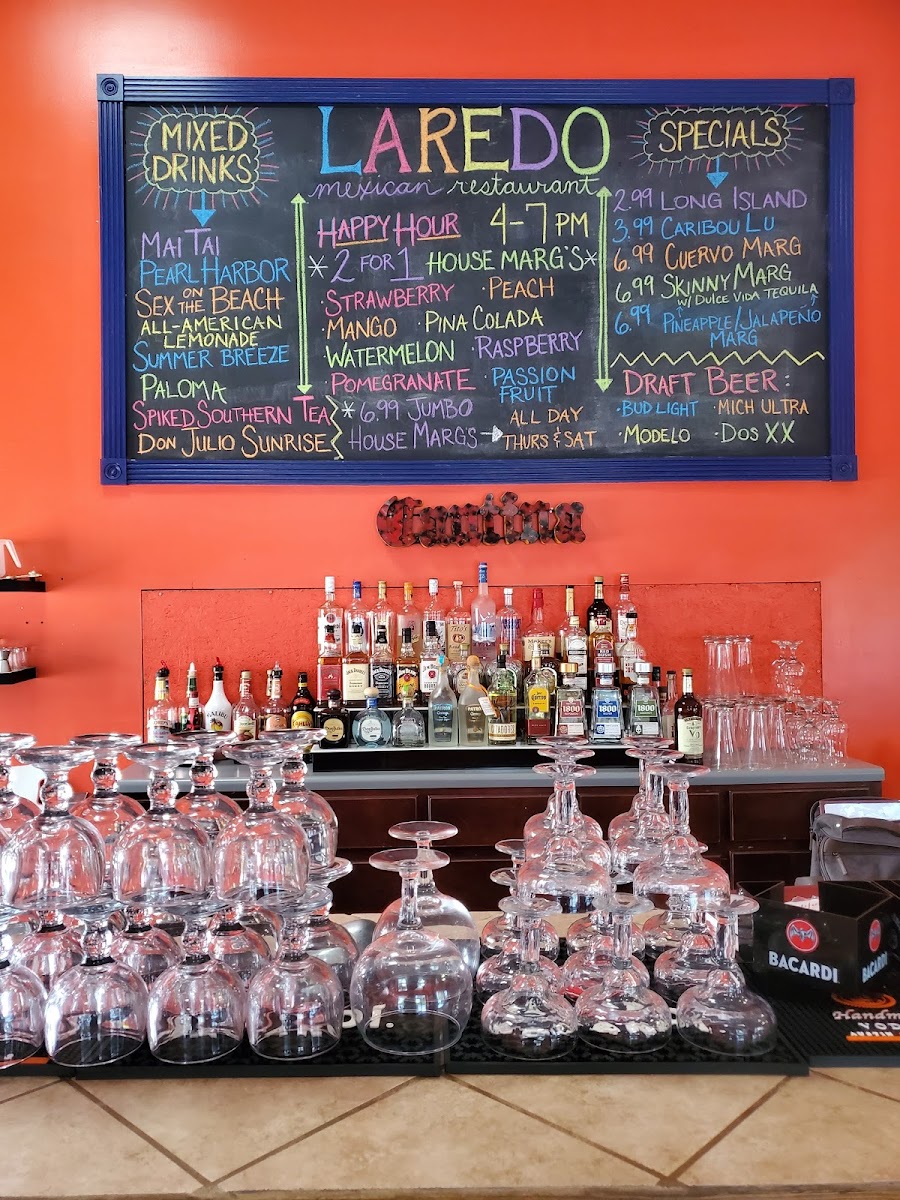 MIXED
DRINKS
MAI TAI
PEARL HARBOR
SEX ON THE BEACH
ALL-AMERICAN
LEMONADE
SUMMER BREEZE
PALOMA
SPIKED SOUTHERN TEA
DON JULIO SUNRISE
LAREDO
mexican restaurant
HAPPY HOUR 4-7 PM
*2 FOR 1 HOUSE MARG'S*
·STRAWBERRY ·PEACH
·MANGO ·PINA COLADA
·WATERMELON ·RASPBERRY
·POMEGRANATE ·PASSION
FRUIT
*6.99 JUMBO
HOUSE MARG'S→
ALL DAY
THURS & SAT
SPECIALS
2.99 LONG ISLAND
3.99 CARIBOU LU
6.99 CUERVO MARG
6.99 SKINNY MARG
W/ DULCE VIDA TEQUILA
6.99 PINEAPPLE/JALAPEÑO
MARG
DRAFT BEER:
·BUD LIGHT ·MICH ULTRA
·MODELO ·DOS XX
Cantina
1800
1800
1800
BACARDI
BACARDI
Handm
VOD